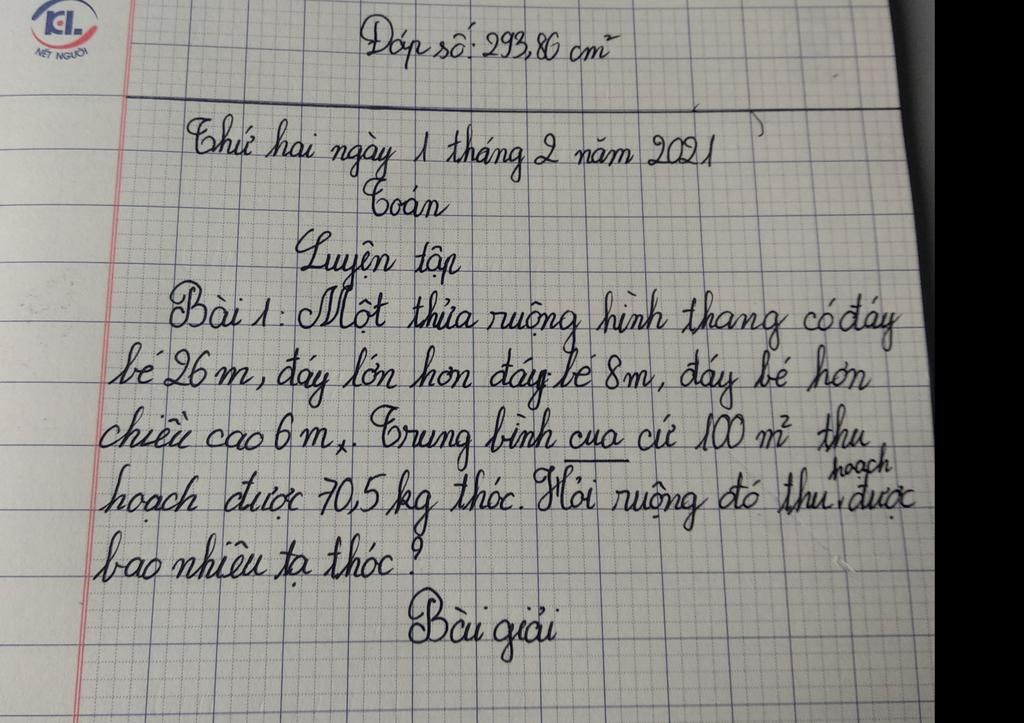 KL
NÉT NGƯỜI
Đáp số: 293,86 cm²
Thứ hai ngày 1 tháng 2 năm 2021
Toán
Luyện tập
Bài 1: Một thửa ruộng hình thang có đáy
bé 26 m, đáy lớn hơn đáy bé 8m, đáy bé hơn
chiều cao 6 m. Trung bình cua cứ 100 m² thu
hoạch được 70,5 kg thóc. Hỏi ruộng đó thu hoạch được
bao nhiêu tạ thóc?
Bài giải